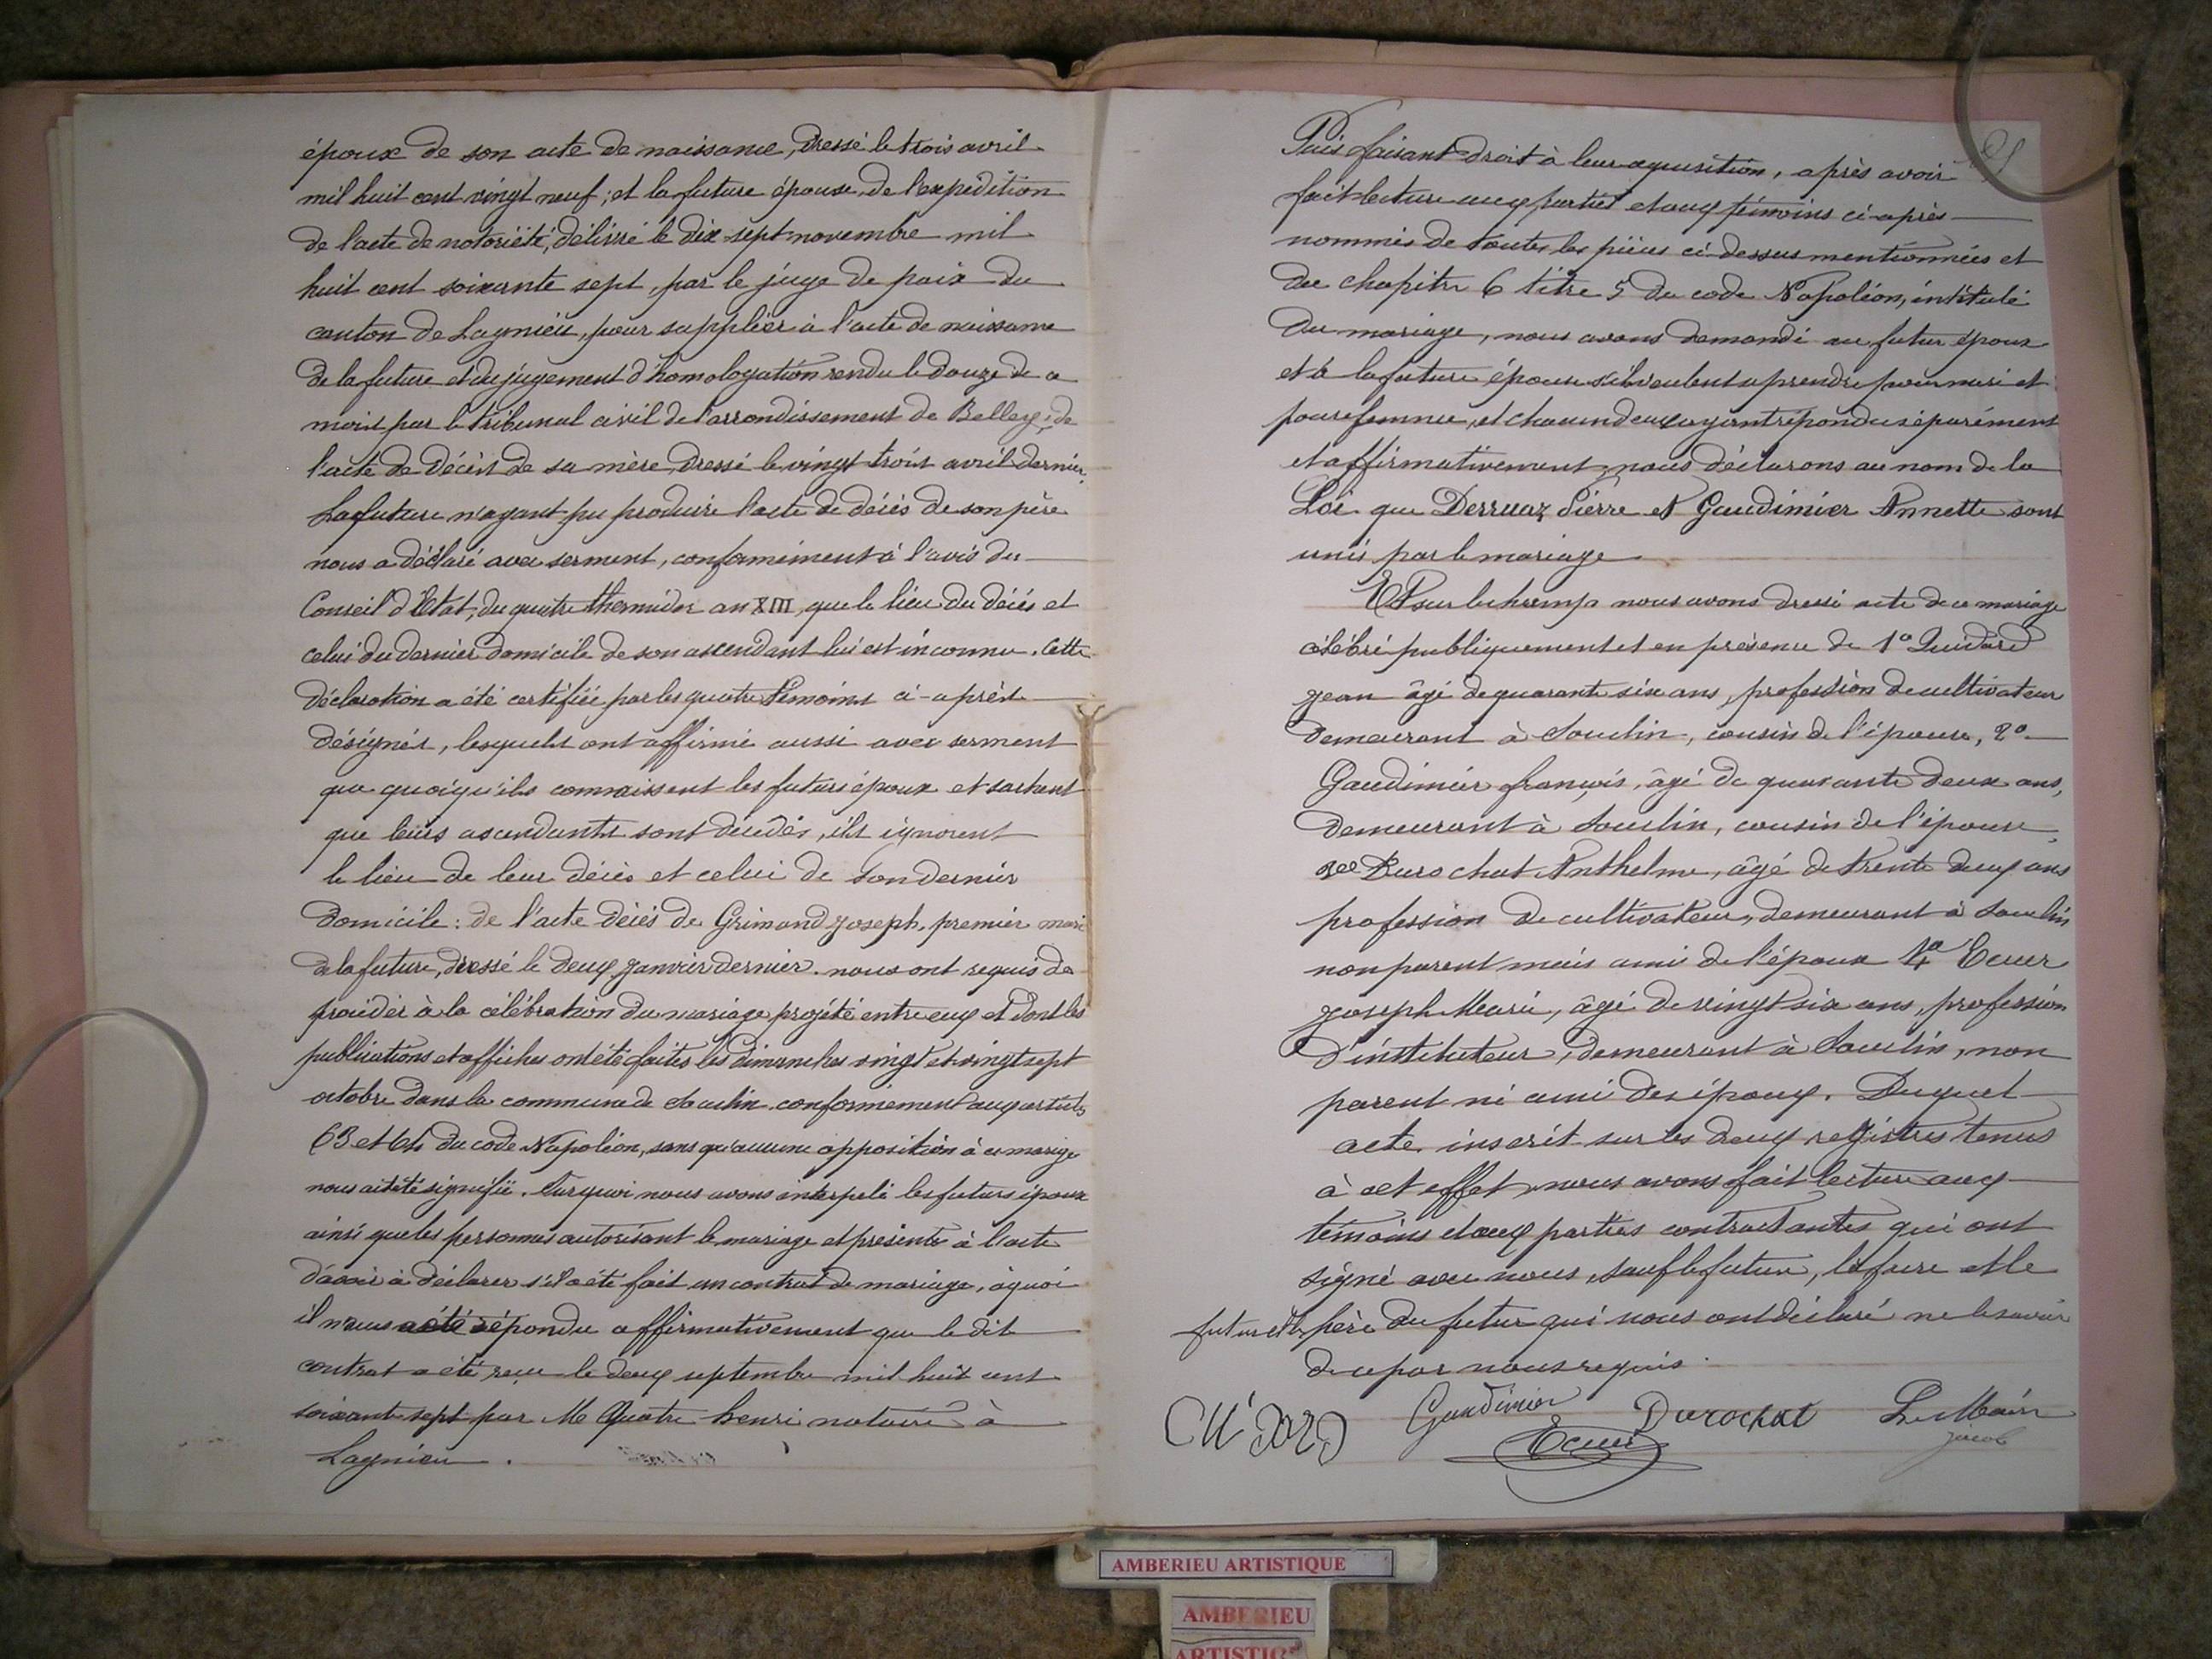 époux de son acte de naissance, dressé le trois avril
mil huit cent vingt neuf; et la future épouse de l'expédition
de l'acte de notoriété, délivré le dix-sept novembre mil
huit cent soixante sept, par le juge de paix du
canton de Lagnieu, pour suppléer à l'acte de naissance
de la future et du jugement d'homologation rendu le douze de ce
mois par le tribunal civil de l'arrondissement de Belley; de
l'acte de décès de sa mère, dressé le vingt trois avril dernier.
La future n'ayant pu produire l'acte de décès de son père
nous a déclaré avec serment, conformément à l'avis du
Conseil d'Etat, du quatre thermidor an XIII, que le lieu du décès et
celui du dernier domicile de son ascendant lui est inconnu. Cette
déclaration a été certifiée par les quatre témoins ci-après
désignés, lesquels ont affirmé aussi avec serment
que quoiqu'ils connaissent les futurs époux et sachent
que leurs ascendants sont décédés, ils ignorent
le lieu de leur décès et celui de son dernier
domicile: de l'acte décès de Grimand Joseph, premier mari
de la future, dressé le deux Janvier dernier. nous ont requis de
procéder à la célébration du mariage projeté entre eux et dont les
publications et affiches ont été faites les dimanches vingt et vingt sept
octobre dans la commune de Souclin conformement aux articles
63 et 64 du code Napoléon, sans qu'aucune opposition à ce mariage
nous ait été signifiée. Surquoi nous avons interpelé les futurs époux
ainsi que les personnes autorisant le mariage et présents à l'acte
d'avoir à déclarer s'il a été fait un contrat de mariage, à quoi
il nous a été répondu affirmativement que le dit
contrat a été reçu le deux septembre mil huit cent
soixante sept par Me Quatre henri notaire à
Lagnieu.
Puis faisant droit à leur requisition, après avoir
fait lecture aux parties et aux témoins ci-après
nommés de toutes les pièces ci-dessus mentionnées et
du chapitre 6 titre 5 du code Napoléon, intitulé
du mariage, nous avons demandé au futur époux
et à la future épouse s'ils veulent se prendre pour mari et
pour femme, et chacun d'eux ayant répondu séparément
et affirmativement, nous déclarons au nom de la
Loi que Derruaz Pierre et Gaudimier Annette sont
unis par le mariage
Et sur le champ nous avons dressé acte de ce mariage
célébré publiquement et en présence de 1º Guidard
Jean âgé de quarante six ans, profession de cultivateur
demeurant à Souclin, cousin de l'épouse, 2º
Gaudimier françois, âgé de quarante deux ans,
demeurant à Souclin, cousin de l'épouse,
Durochat Anthelme, âgé de trente deux ans
profession de cultivateur, demeurant à Souclin
non parent mais ami de l'époux 4º Ecuer
Joseph Marie, âgé de vingt six ans, profession
d'instituteur, demeurant à Souclin, non
parent ni ami des époux. Duquel
acte inscrit sur les deux registres tenus
à cet effet, nous avons fait lecture aux
témoins et aux parties contractantes qui ont
signé avec nous, sauf le future, et le
futur et le père du futur qui nous ont déclaré ne le savoir
de ce par nous requis.
Gaudimier Durochat Le Maire
Ecuer Jacob
AMBERIEU ARTISTIQUE
AMBERIEU
ARTISTIQ